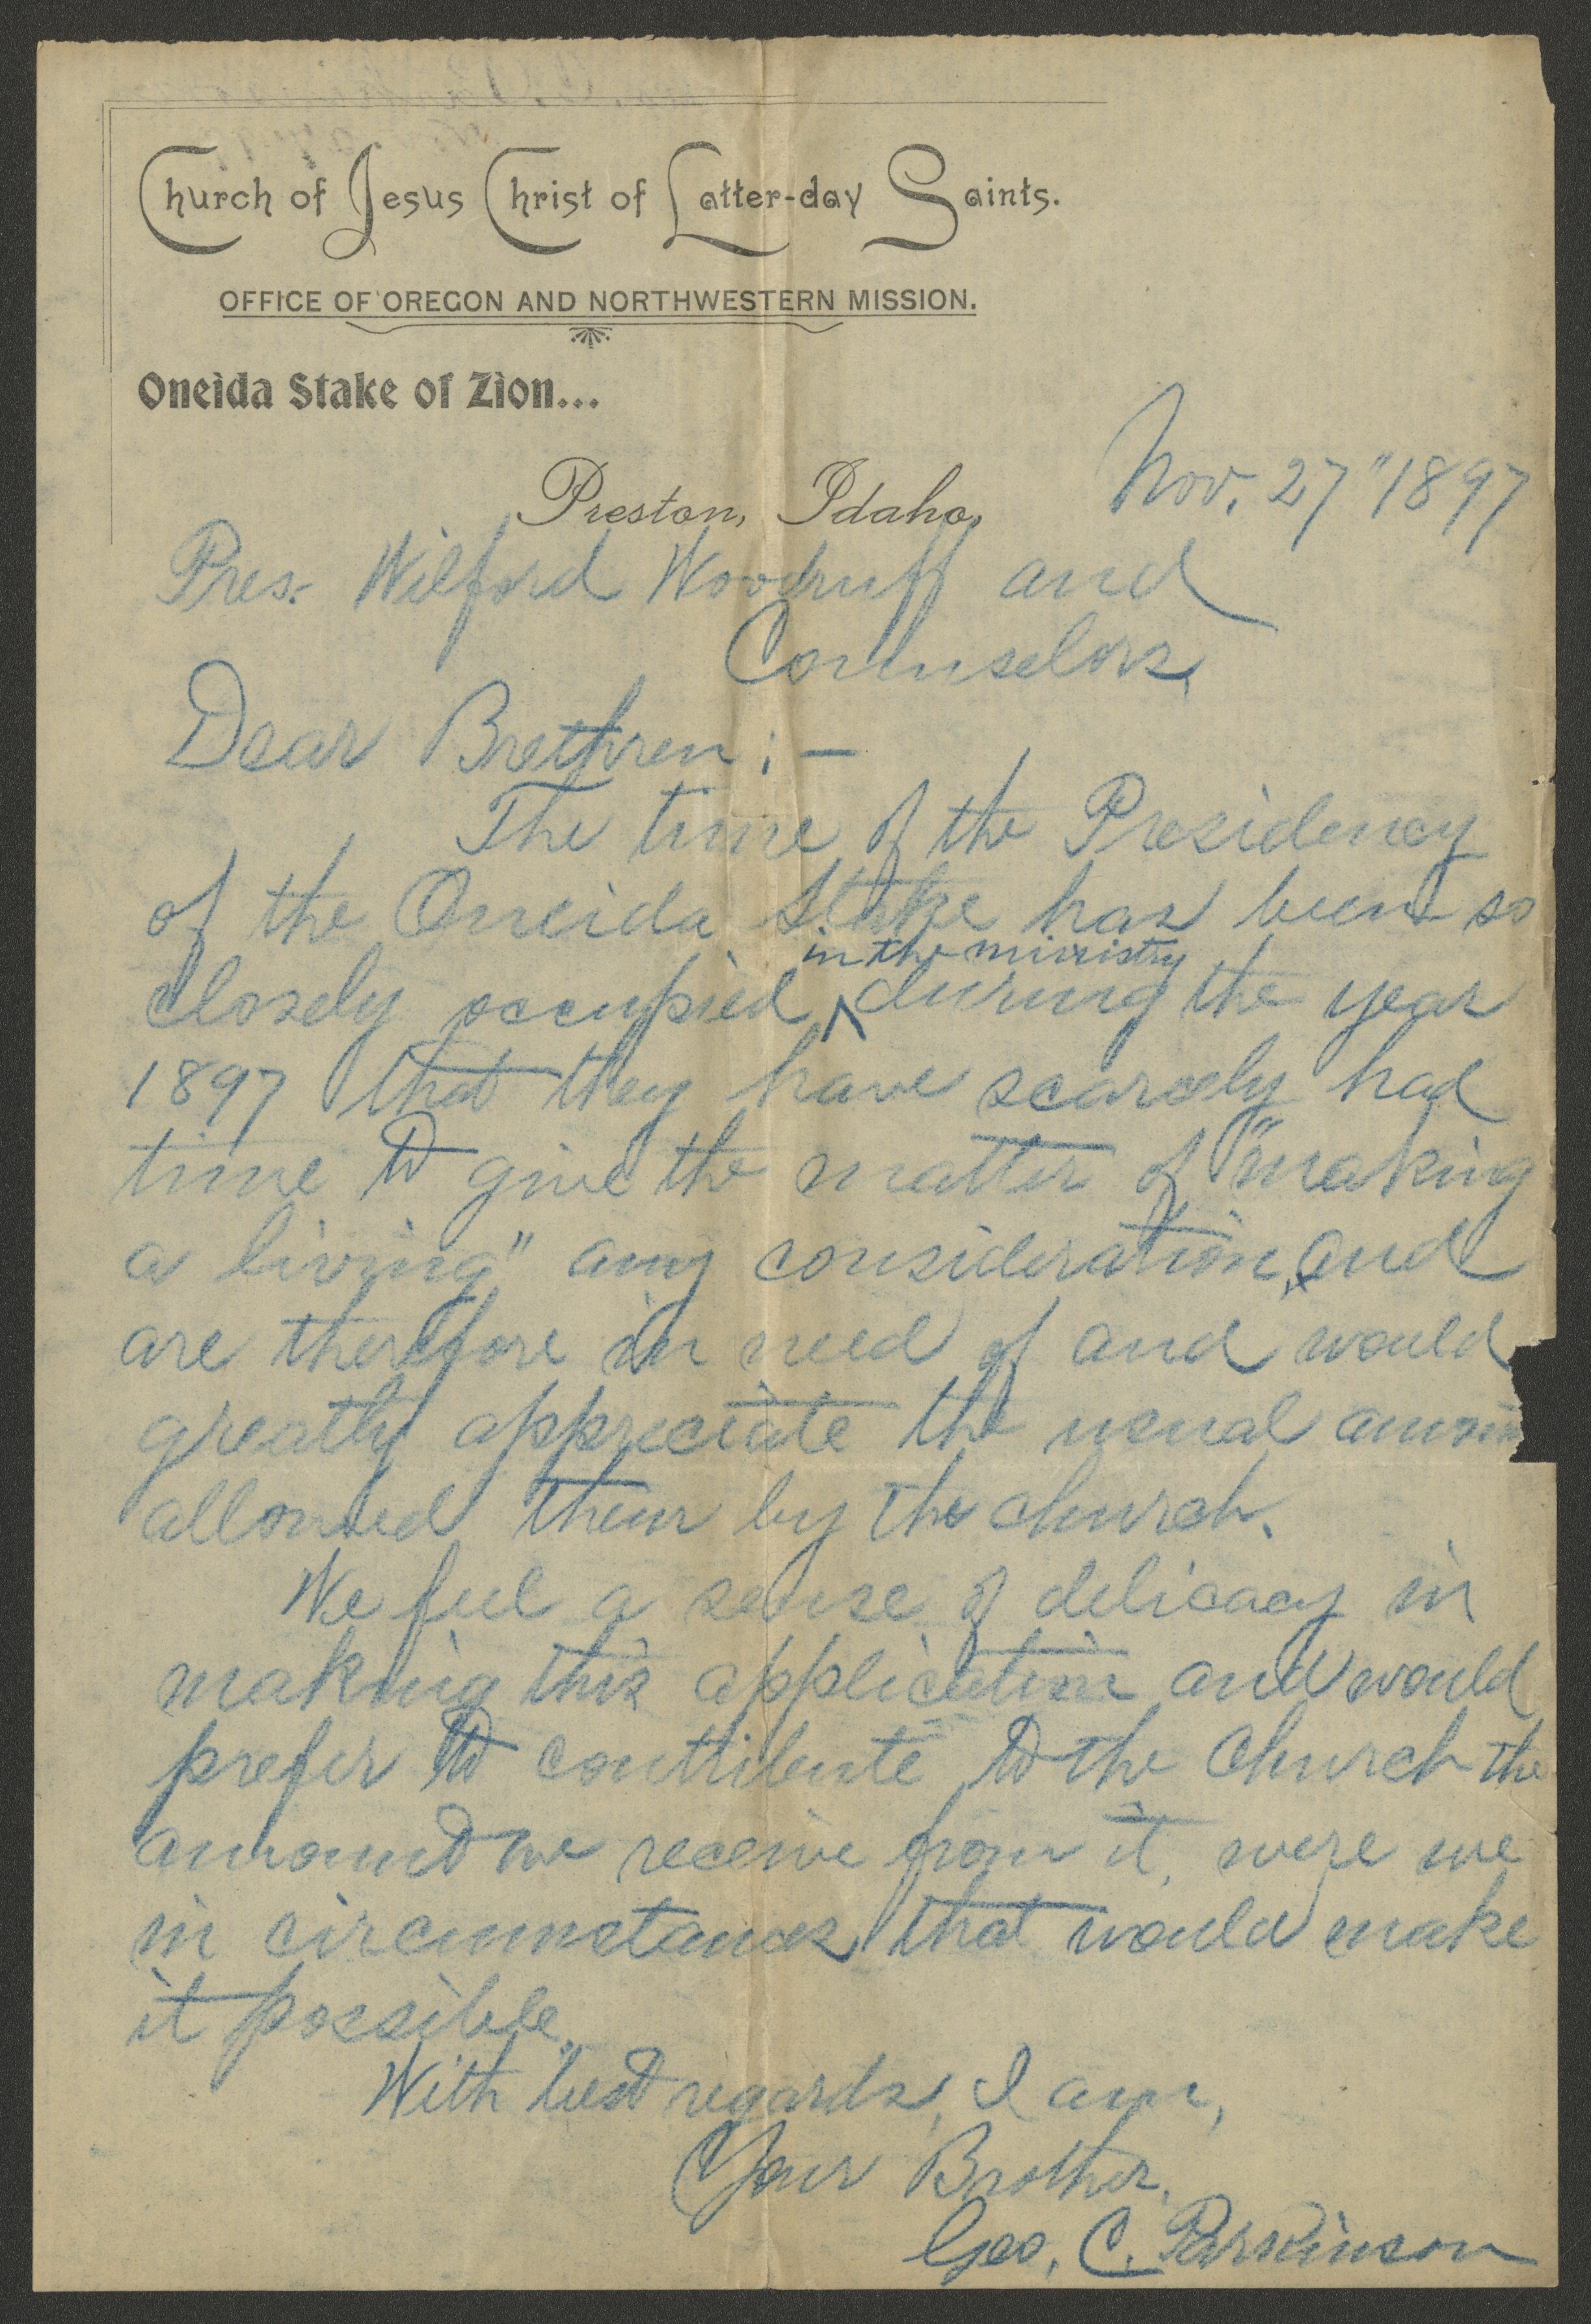 Church of Jesus Christ of Latter-day Saints.
OFFICE OF OREGON AND NORTHWESTERN MISSION.
Oneida Stake of Zion...
Preston, Idaho, Nov. 27" 1897
Pres. Wilford Woodruff and
Counselors,
Dear Brethren; —
The time of the Presidency
of the Oneida Stake has been so
in the ministry
closely occupied ^ during the year
1897 that they have scarcely had
time to give the matter of "making
a living" any consideration, and
are therefore in need of and would
greatly appreciate the usual amoun
allowed them by the church.
We feel a sense of delicacy in
making this application and would
prefer to contribute to the Church the
amount we receive from it, were we
in circumstances that would make
it possible.
With best regards, I am,
Your Brother,
Geo. C. Parkinson